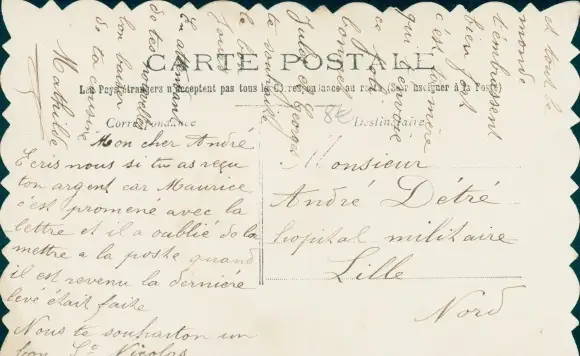 CARTE POSTALE
Les Pays étrangers n'acceptent pas tous la Correspondance au recto (Se renseigner à la Poste)
Correspondance
Destinataire
Mon cher André
Ecris nous si tu as reçu
ton argent car Maurice
c'est promené avec la
lettre et il a oublié de la
mettre a la poste quand
il est revenu la dernière
levé était faite
Nous te souhaiton un
bon St Nicolas
Monsieur
André Détré
hopital militaire
Lille
Nord
80
et tout le
monde
t'embrassent
bien fort
c'est Germaine
qui t'envoie
ce
Jules et Georges
te souhaite
le bon
jour
En attendant
de tes nouvelles
bon baiser
de ta cousine
Mathilde